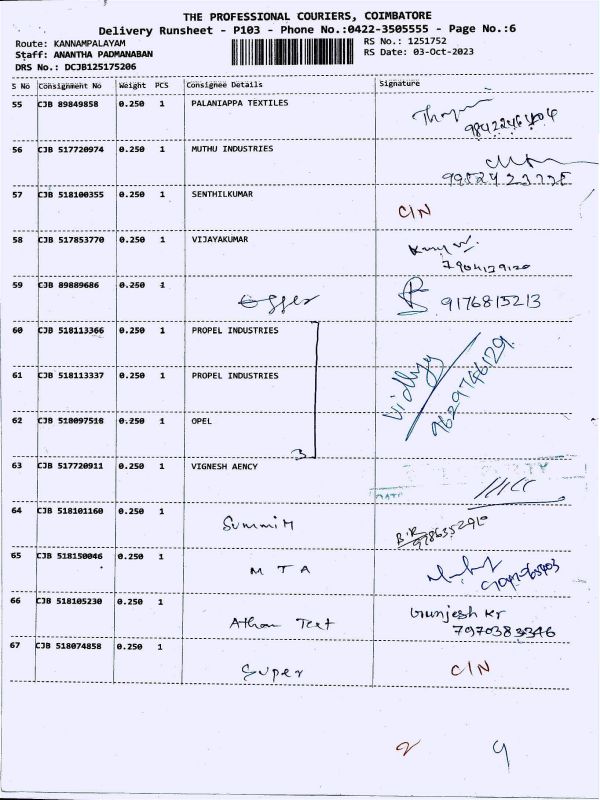 THE PROFESSIONAL COURIERS, COIMBATORE
Delivery Runsheet - P103 - Phone No.:0422-3505555 - Page No.:6
Route: KANNAMPALAYAM
RS No.: 1251752
Staff: ANANTHA PADMANABAN
RS Date: 03-Oct-2023
DRS No.: DCJB125175206
S No Consignment No Weight PCS Consignee Details Signature
55 CJB 89849858 0.250 1 PALANIAPPA TEXTILES
56 CJB 517720974 0.250 1 MUTHU INDUSTRIES
57 CJB 518100355 0.250 1 SENTHILKUMAR
C/N
58 CJB 517853770 0.250 1 VIJAYAKUMAR
7904129120
59 CJB 89889686 0.250 1
9176815213
60 CJB 518113366 0.250 1 PROPEL INDUSTRIES
61 CJB 518113337 0.250 1 PROPEL INDUSTRIES
Vidhya
9629746129
62 CJB 518097516 0.250 1 OPEL
3
63 CJB 517720911 0.250 1 VIGNESH AENCY
DATE
64 CJB 518101160 0.250 1
Summit
65 CJB 518150046 0.250 1
M T A
66 CJB 518105230 0.250 1
Gunjesh Kr
7970383346
67 CJB 518074858 0.250 1
Super C/N
2 9